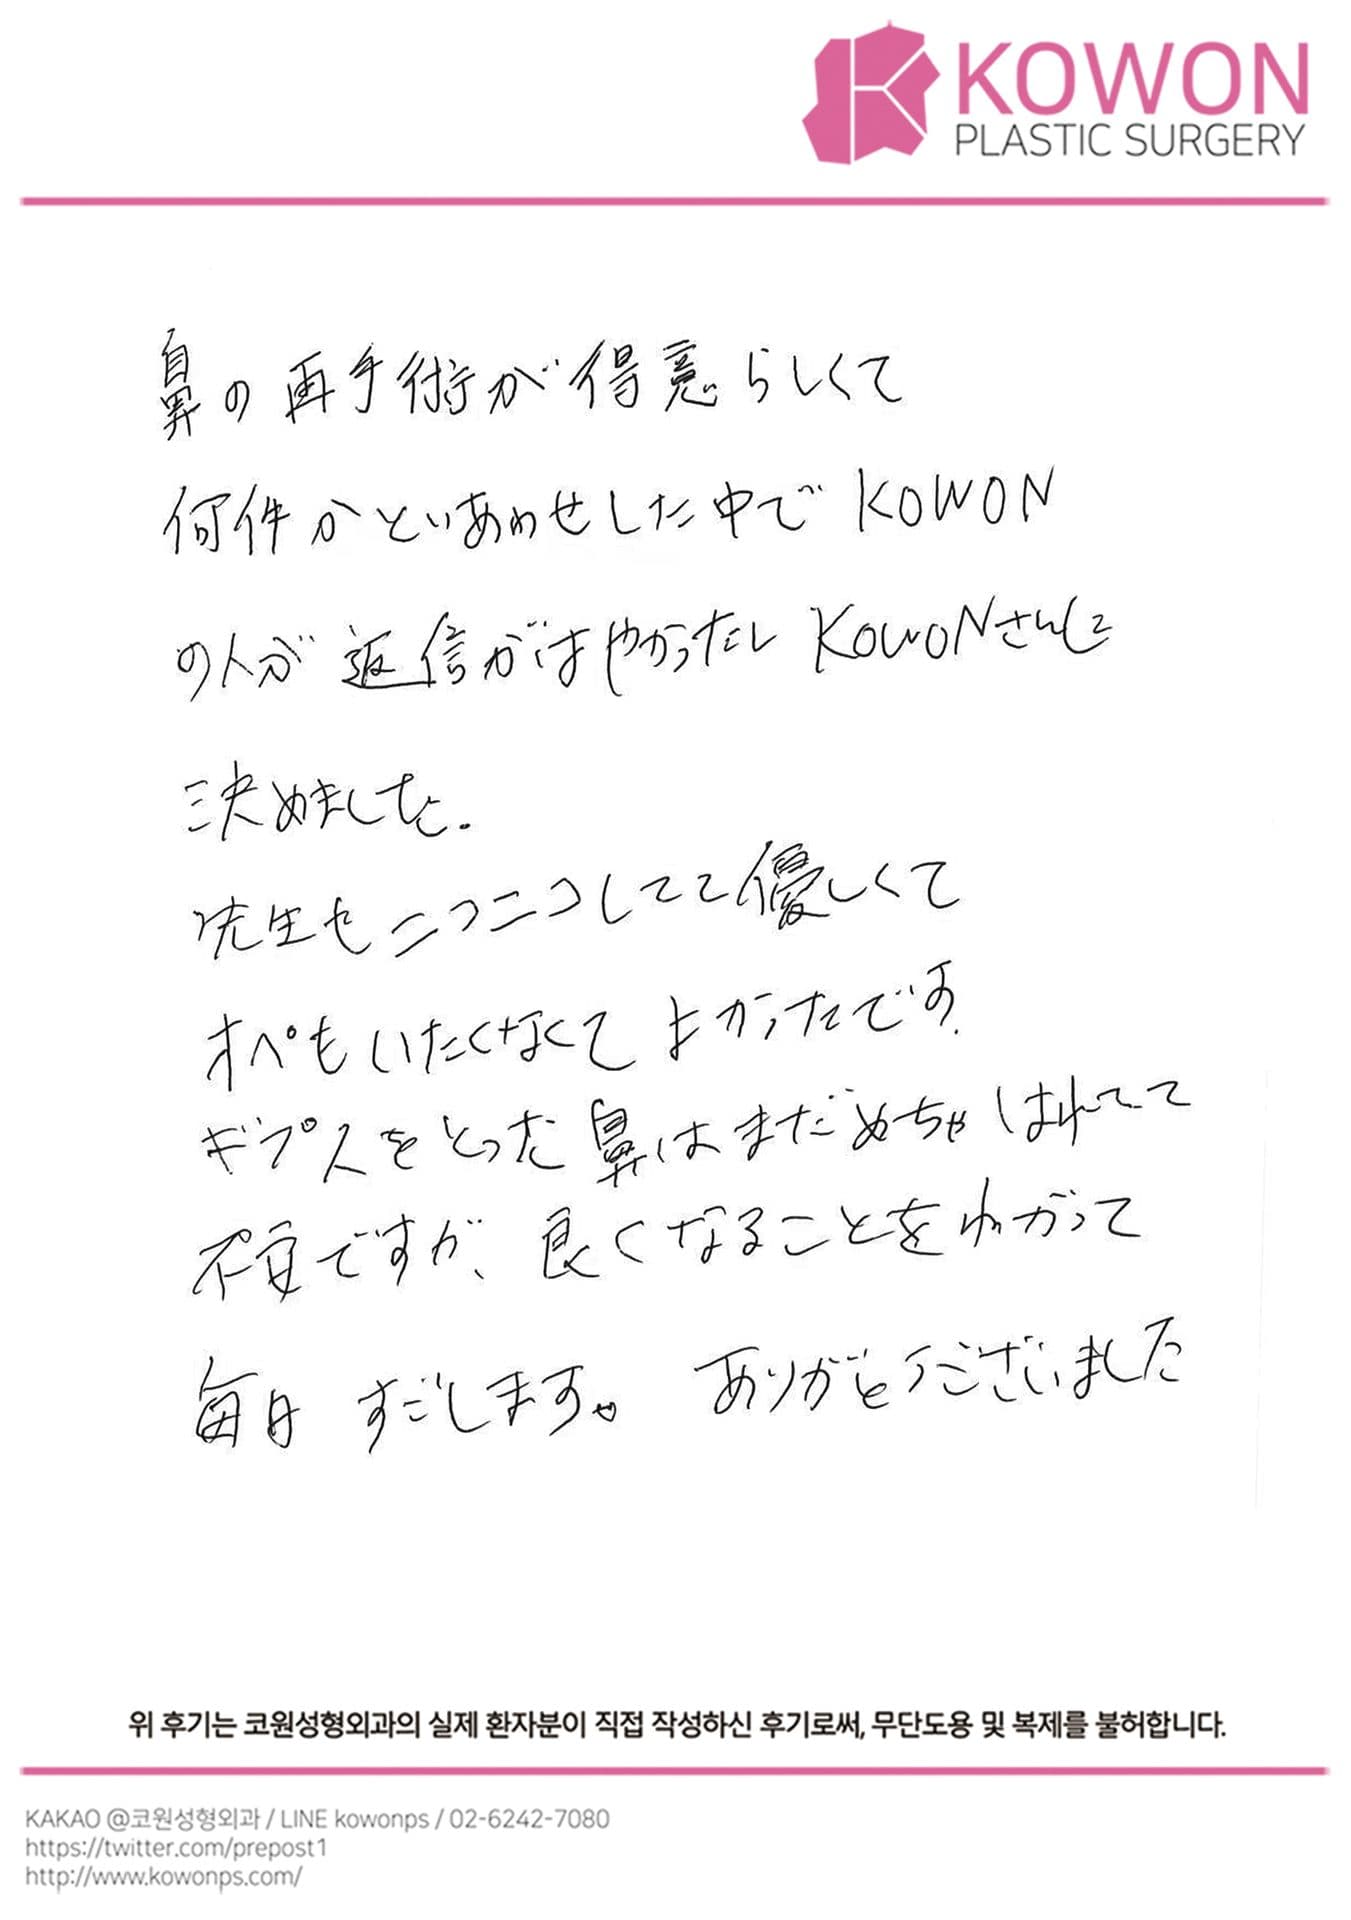 KOWON
PLASTIC SURGERY
鼻の再手術が得意らしくて
何件かといあわせした中で KOWON
の人が返信がはやかったし KOWONさんに
決めました.
先生もニコニコしてて優しくて
オペもいたくなくてよかったです.
ギプスをとった鼻はまだめちゃはれてて
不安ですが、良くなることをねがって
毎日 すごします。 ありがとうございました
위 후기는 코원성형외과의 실제 환자분이 직접 작성하신 후기로써, 무단도용 및 복제를 불허합니다.
KAKAO @코원성형외과 / LINE kowonps / 02-6242-7080
https://twitter.com/prepost1
http://www.kowonps.com/